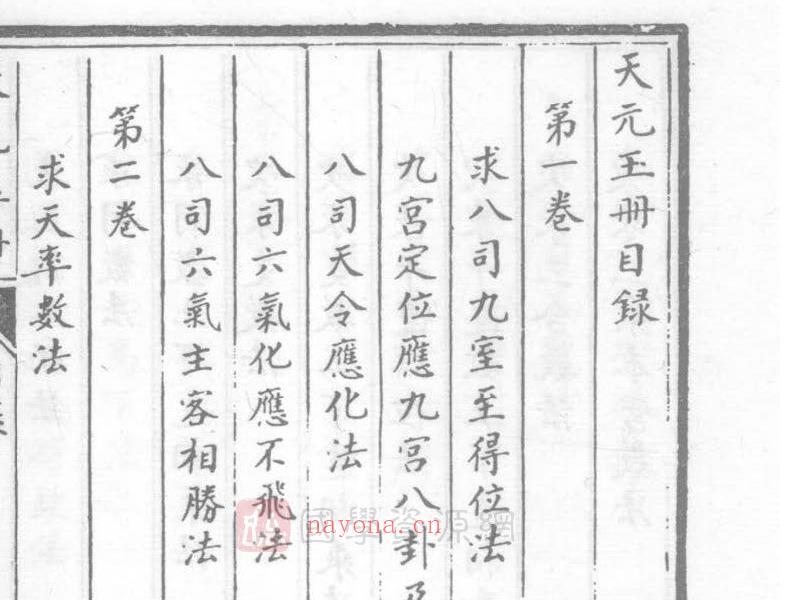 天元玉冊目録
第一卷
求八司九室至得位法
九宮定位應九宮八卦及
八司天令應化法
八司六氣化應不飛法
八司六氣主客相勝法
第二卷
求天率數法
國學資源網
nayona.cn